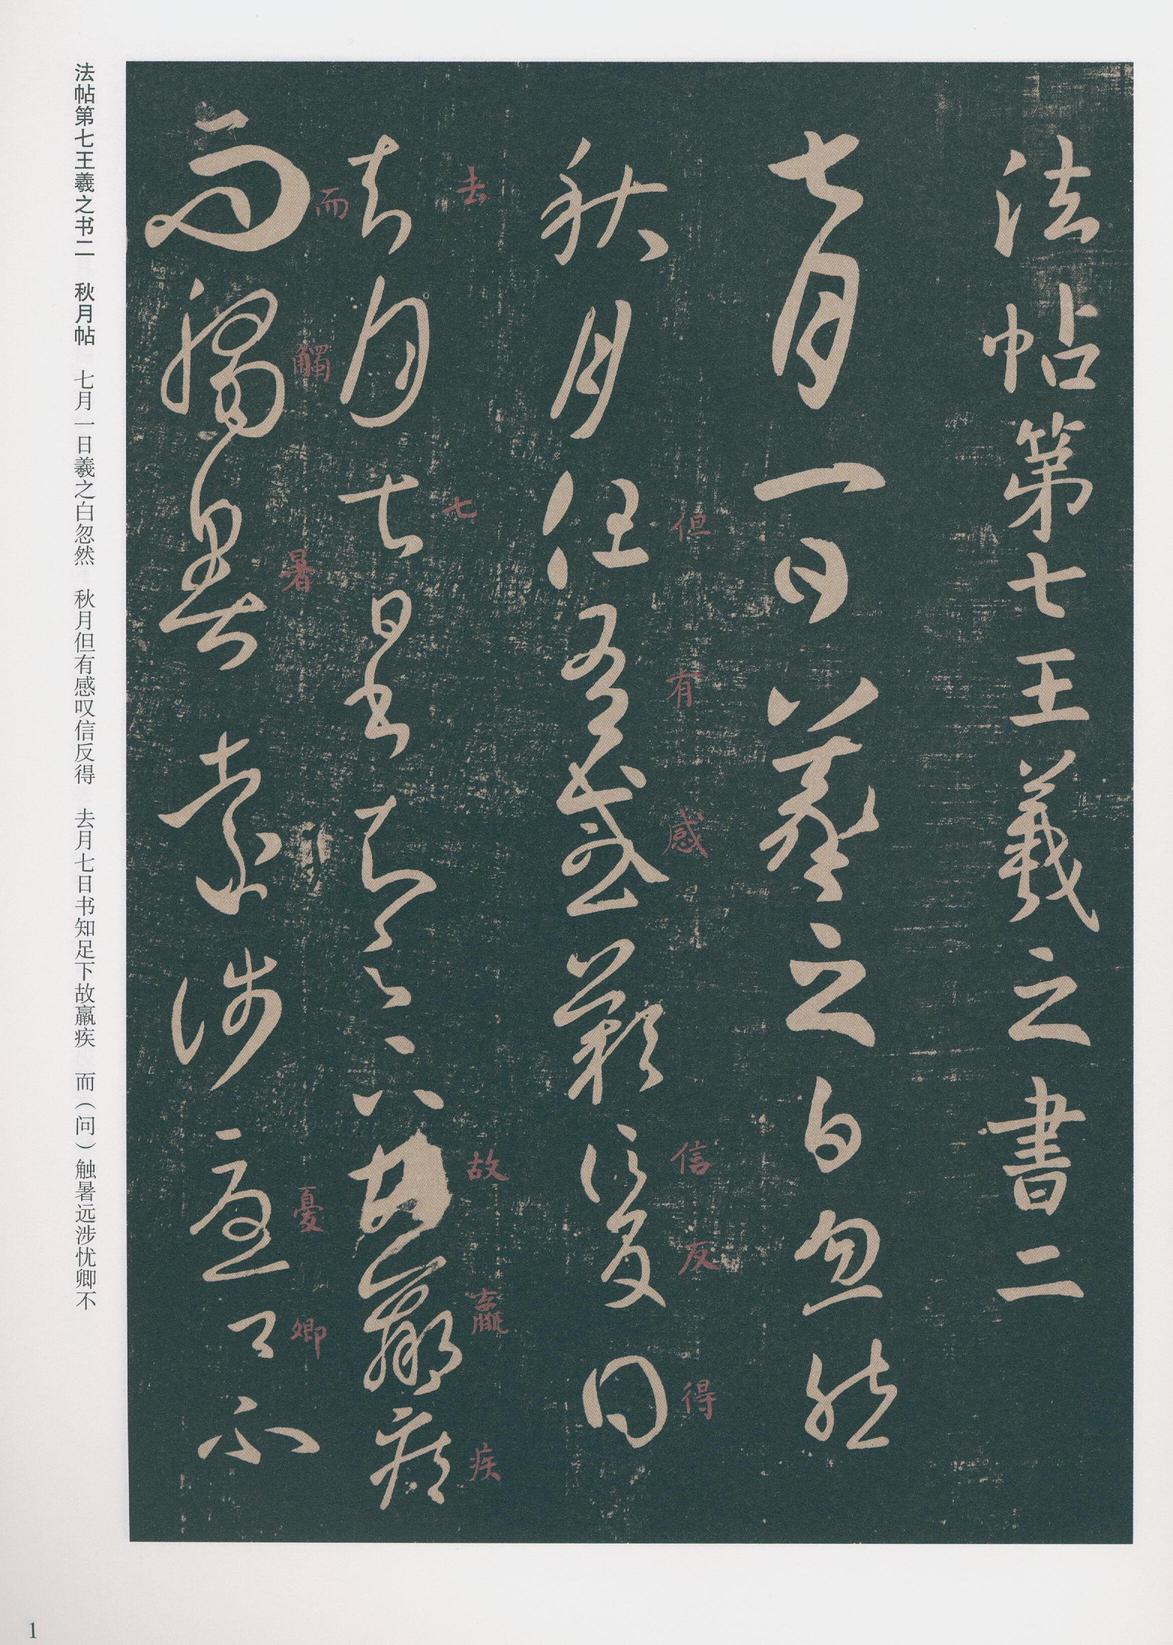 法帖第七王羲之書二
七月一日羲之白忽然
秋月但有感歎信反得
但有感信反得
去月七日書知足下故羸疾
去七故羸疾
而觸暑遠涉憂卿不
而觸暑憂卿
法帖第七王羲之书二 秋月帖 七月一日羲之白忽然 秋月但有感叹信反得 去月七日书知足下故羸疾 而（问）触暑远涉忧卿不
1